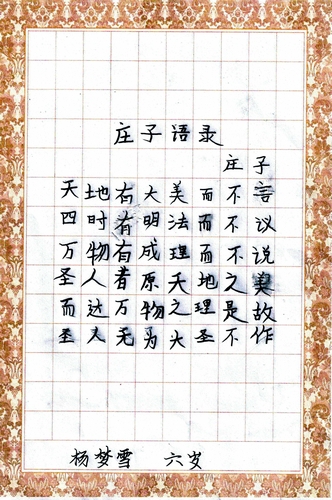 庄子语录
庄子
天地有大美而不言
四时有明法而不议
万物有成理而不说
圣人者原天地之美
而达万物之理是故
至人无为大圣不作
杨梦雪 六岁